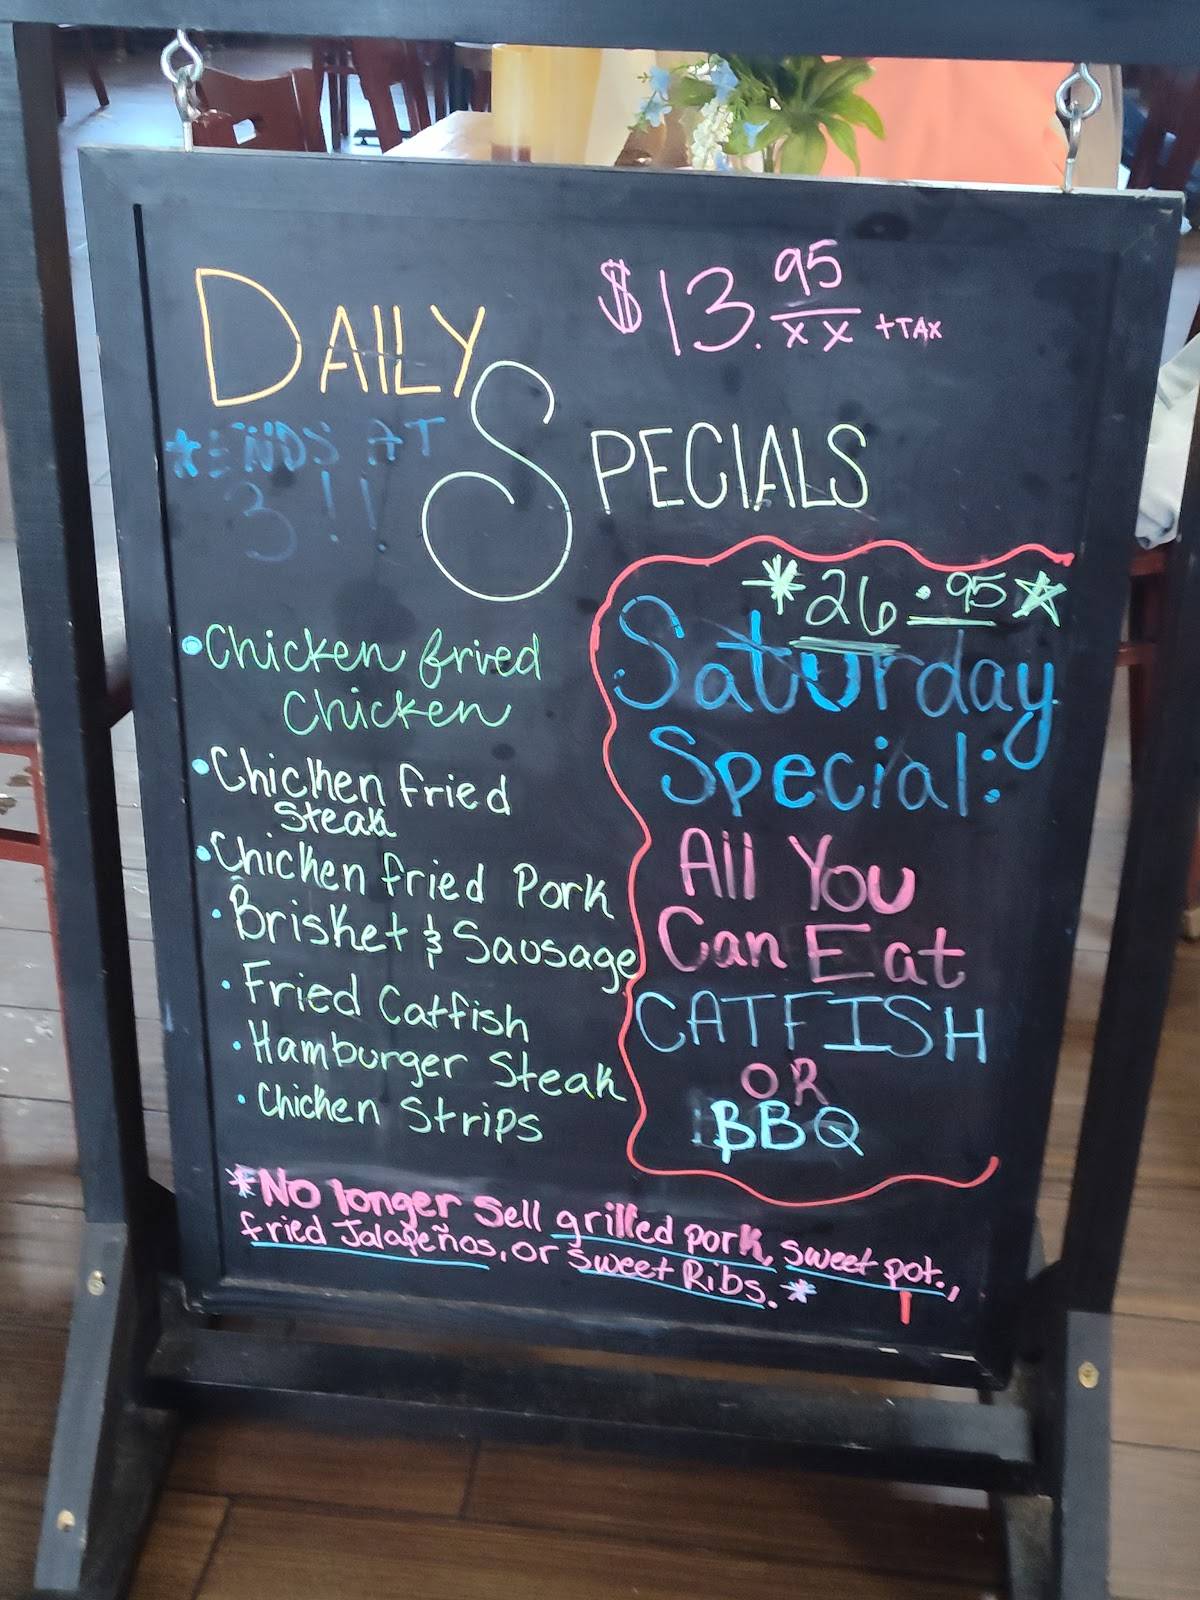 $13.95 + TAX
xx
DAILY
SPECIALS
*ENDS AT
3!!
•Chicken fried
Chicken
•Chicken fried
Steak
•Chicken fried Pork
•Brisket & Sausage
•Fried Catfish
•Hamburger Steak
•Chicken Strips
*26.95☆
Saturday
Special:
All You
Can Eat
CATFISH
OR
BBQ
*No longer Sell grilled pork, sweet pot.,
fried Jalapeños, or sweet Ribs.*